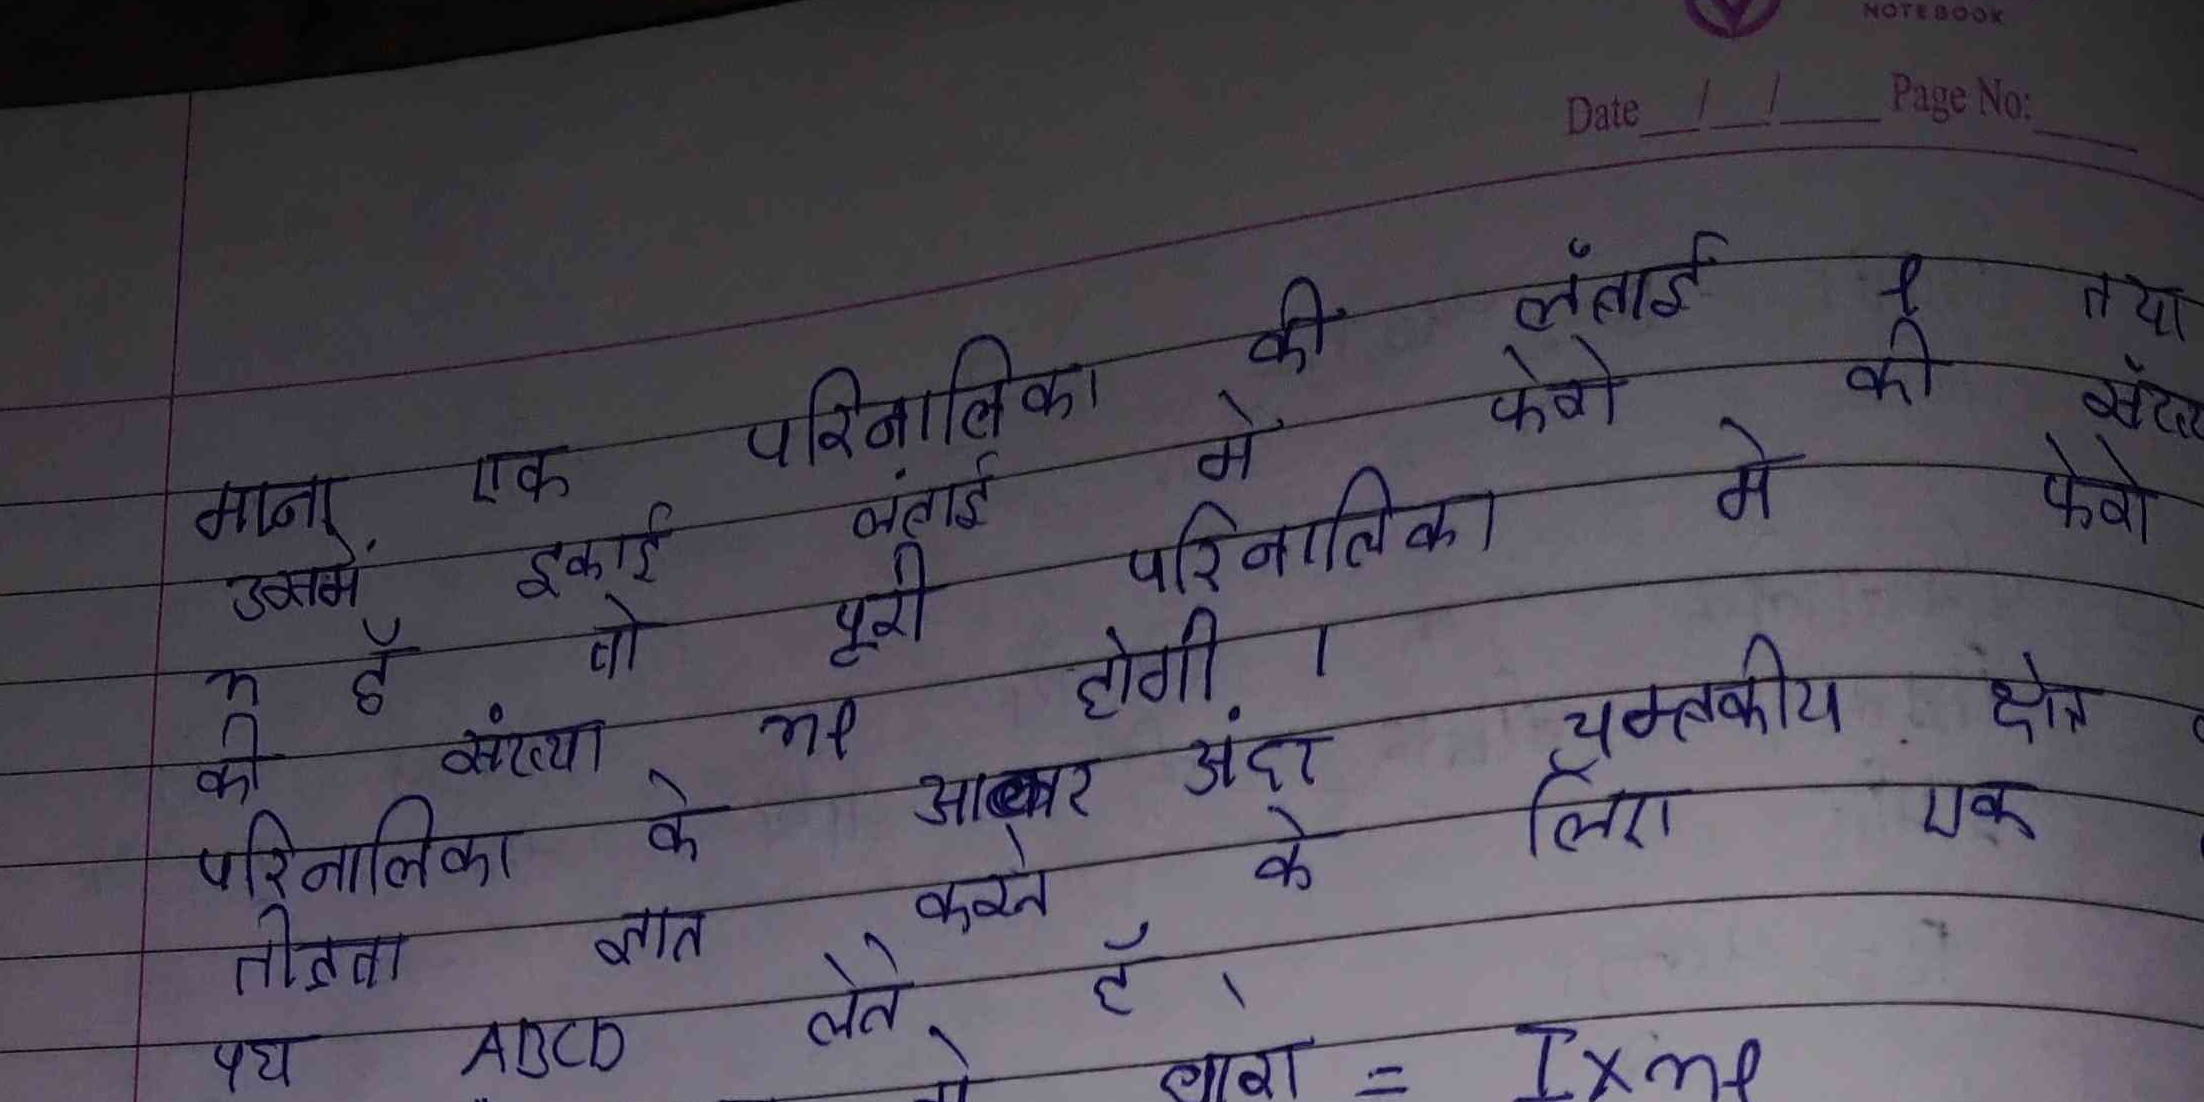 NOTEBOOK
Date __/__/____ Page No: ____
माना एक परिनालिका की लंबाई l तथा
उसमें इकाई लंबाई में फेरो की
n है तो पूरी परिनालिका मे फेरो
की संख्या nl होगी ।
परिनालिका के अंदर चुम्बकीय क्षेत्र
तीव्रता ज्ञात करने के लिए एक
पथ ABCD लेते है ।
धारा = I x nl